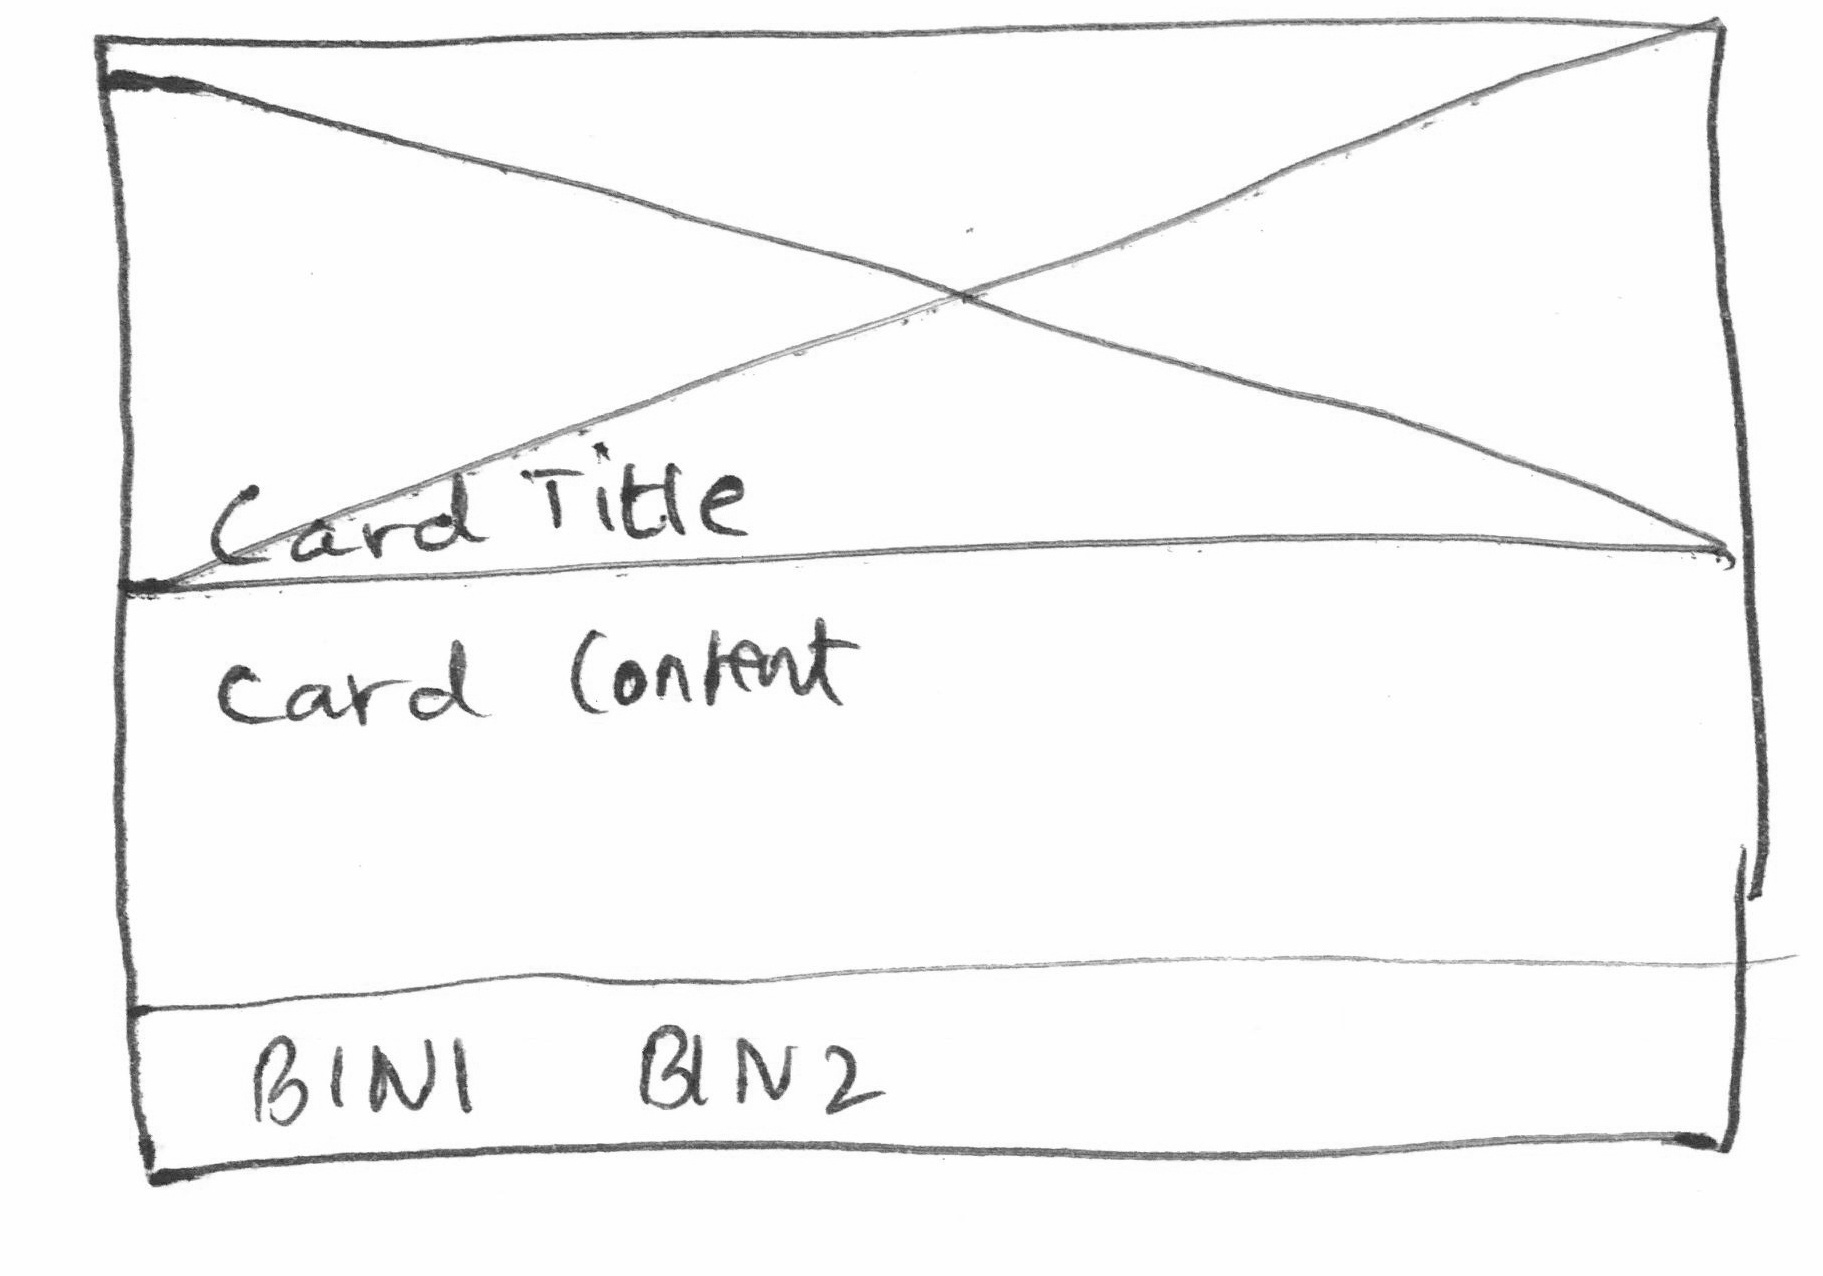 Card Title
Card Content
BIN1 BIN2